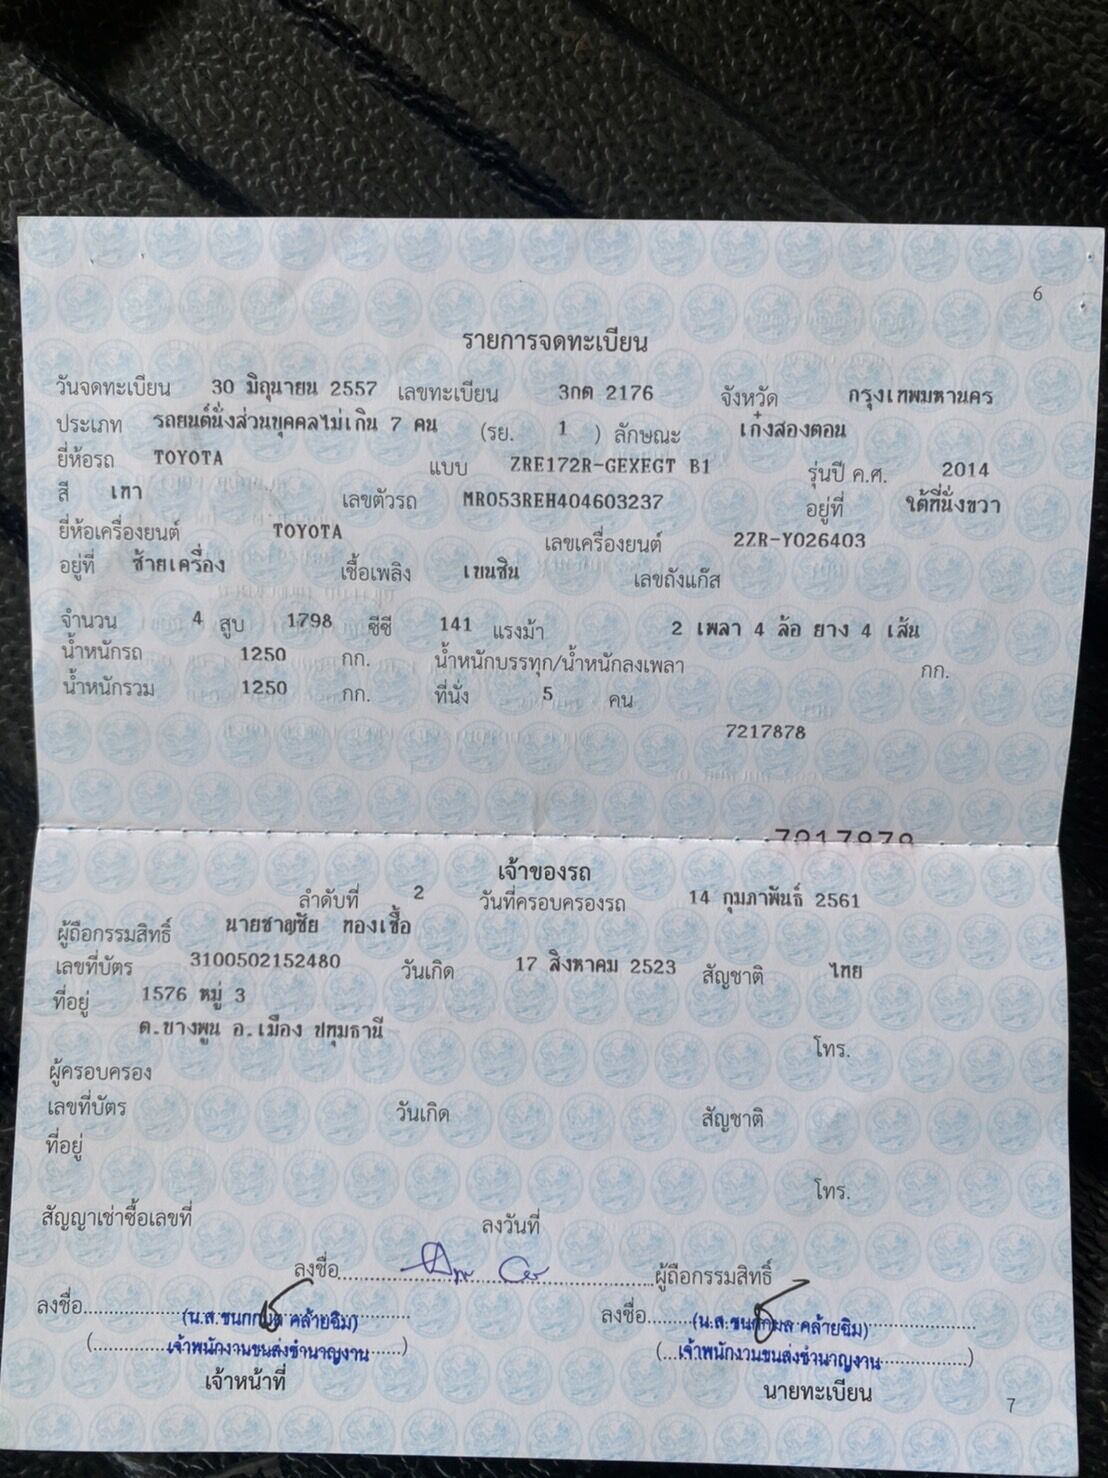 6
รายการจดทะเบียน
วันจดทะเบียน 30 มิถุนายน 2557 เลขทะเบียน 3กต 2176 จังหวัด กรุงเทพมหานคร
ประเภท รถยนต์นั่งส่วนบุคคลไม่เกิน 7 คน (รย. 1 ) ลักษณะ เก๋งสองตอน
ยี่ห้อรถ TOYOTA แบบ ZRE172R-GEXEGT B1 รุ่นปี ค.ศ. 2014
สี เทา เลขตัวรถ MR053REH404603237 อยู่ที่ ใต้ที่นั่งขวา
ยี่ห้อเครื่องยนต์ TOYOTA เลขเครื่องยนต์ 2ZR-Y026403
อยู่ที่ ซ้ายเครื่อง เชื้อเพลิง เบนซิน เลขถังแก๊ส
จำนวน 4 สูบ 1798 ซีซี 141 แรงม้า 2 เพลา 4 ล้อ ยาง 4 เส้น
น้ำหนักรถ 1250 กก. น้ำหนักบรรทุก/น้ำหนักลงเพลา กก.
น้ำหนักรวม 1250 กก. ที่นั่ง 5 คน
7217878
เจ้าของรถ
ลำดับที่ 2 วันที่ครอบครองรถ 14 กุมภาพันธ์ 2561
ผู้ถือกรรมสิทธิ์ นายชาญชัย ทองเชื้อ
เลขที่บัตร 3100502152480 วันเกิด 17 สิงหาคม 2523 สัญชาติ ไทย
ที่อยู่ 1576 หมู่ 3
ต.บางพูน อ.เมือง ปทุมธานี
โทร.
ผู้ครอบครอง
เลขที่บัตร วันเกิด สัญชาติ
ที่อยู่
โทร.
สัญญาเช่าซื้อเลขที่ ลงวันที่
ลงชื่อ ผู้ถือกรรมสิทธิ์
ลงชื่อ (น.ส.ชนกกมล คล้ายฉิม) ลงชื่อ (น.ส.ชนกกมล คล้ายฉิม)
(เจ้าพนักงานขนส่งชำนาญงาน) (เจ้าพนักงานขนส่งชำนาญงาน)
เจ้าหน้าที่ นายทะเบียน
7